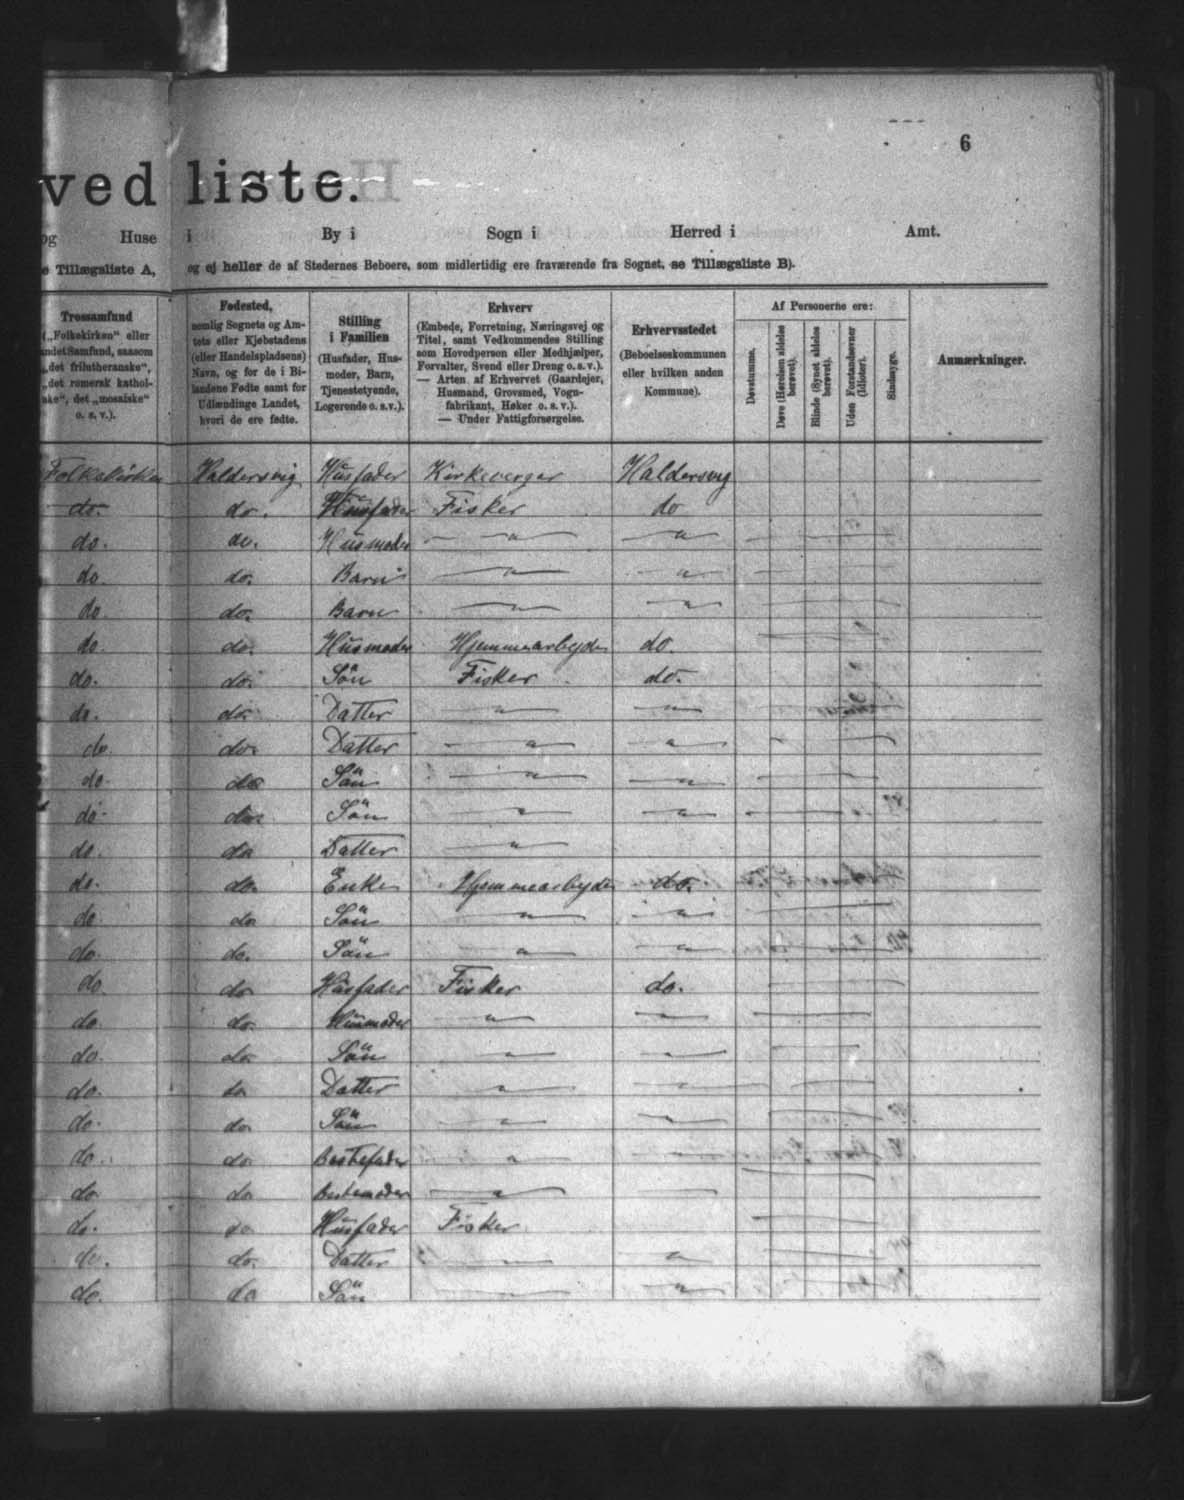 6
ved liste.
og Huse i By i Sogn i Herred i Amt.
e Tillægsliste A, og ej heller de af Stedernes Beboere, som midlertidig ere fraværende fra Sognet, se Tillægsliste B).
Trossamfund
(„Folkekirken“ eller
andet Samfund, saasom
„det frilutheranske“,
„det romersk kathol-
ske“, det „mosaiske“
o. s. v.).
Fødested,
nemlig Sognets og Am-
tets eller Kjøbstadens
(eller Handelspladsens)
Navn, og for de i Bi-
landene Fødte samt for
Udlændinge Landet,
hvori de ere fødte.
Stilling
i Familien
(Husfader, Hus-
moder, Barn,
Tjenestetyende,
Logerende o. s.v.).
Erhverv
(Embede, Forretning, Næringsvej og
Titel, samt Vedkommendes Stilling
som Hovedperson eller Medhjælper,
Forvalter, Svend eller Dreng o. s. v.).
— Arten af Erhvervet (Gaardejer,
Husmand, Grovsmed, Vogn-
fabrikant, Høker o. s. v.).
— Under Fattigforsørgelse.
Erhvervsstedet
(Beboelseskommunen
eller hvilken anden
Kommune).
Af Personerne ere:
Døvstumme.
Døve (Hørelsen aldeles
berøvet).
Blinde (Synet aldeles
berøvet).
Uden Forstandsevner
(Idioter).
Sindssyge.
Anmærkninger.
Folkekirken Haldersvig Husfader Kirkeverger Haldersvig
do. do. Husfader Fisker do
do. do. Husmoder — " — — " —
do. do. Barn — " — — " —
do. do. Barn — " — — " —
do. do. Husmoder Hjemmearbyde do.
do. do. Sön Fisker do.
do. do. Datter — " — — " —
do. do. Datter — " — — " —
do. do Sön — " — — " —
do. do. Sön — " — — " —
do. do Datter — " —
do. do. Enke Hjemmearbyde do.
do do Sön — " — — " —
do. do. Sön — " — — " —
do. do Husfader Fisker do.
do. do. Husmoder — " — — " —
do. do. Sön — " — — " —
do. do Datter — " — — " —
do. do. Sön — " — — " —
do. do Bestefader — " —
do do Bestemoder — " — —
do. do Husfader Fisker
do. do. Datter — — " —
do. do Sön — — " —